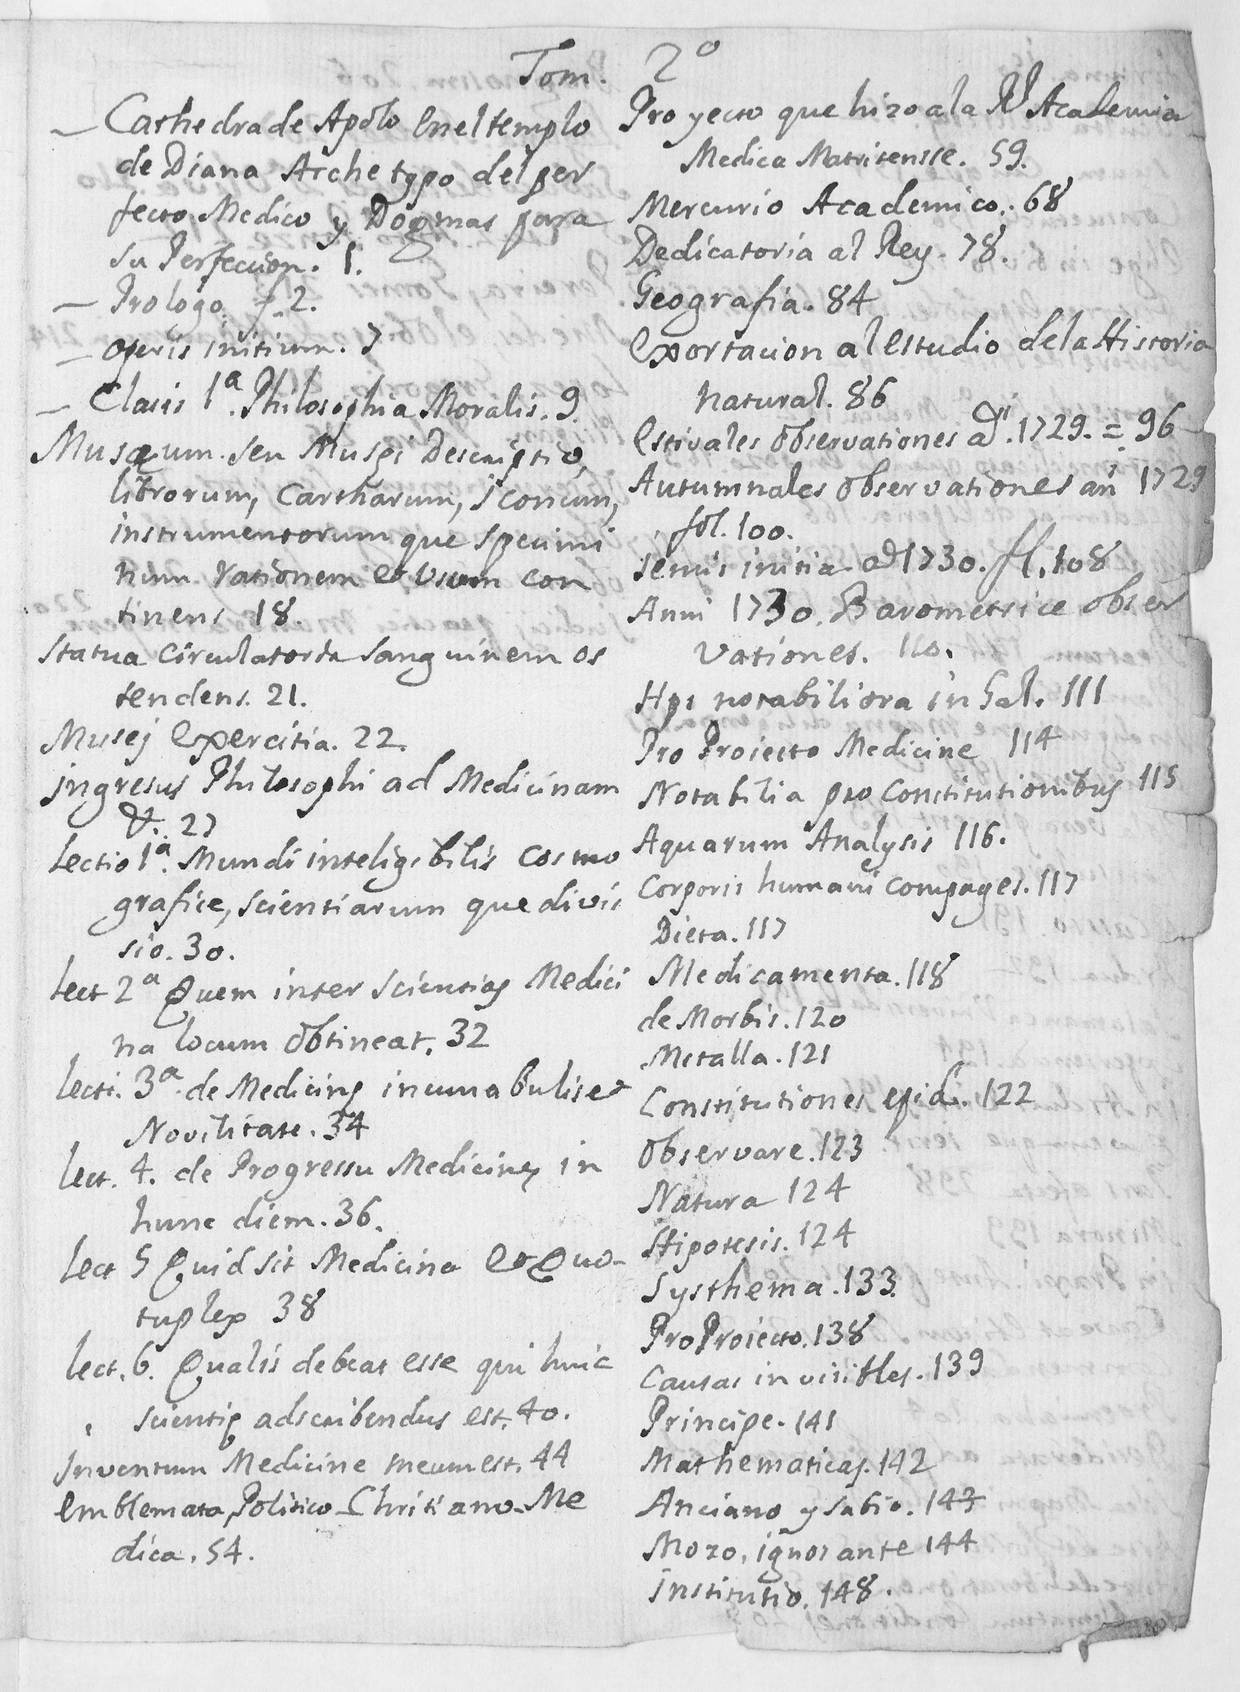 Tom. 2º
— Cathedra de Apolo en el templo
de Diana Archetypo del per
fecto Medico y Dogmas para
su Perfeccion. 1.
— Prologo. f. 2.
— operis initium. 7
— Clasis 1ª. Philosophia Moralis. 9.
Musæum seu Musęi Descriptio,
librorum, Cartharum, iconum,
instrumentorum que specimi
num rationem et Usum con
tinens 18.
Statua circulatoria sanguinem os
tendens. 21.
Musej Exercitia. 22.
ingresus Philosophi ad Medicinam
27
Lectio 1ª. Mundi inteligibilis cosmo
grafice, scientiarum que divis
sio. 30.
Lect 2ª Quem inter scientias Medici
na locum obtineat. 32
Lecti. 3ª. de Medicinę incunabulis et
Novilitate. 34
Lect. 4. de Progressu Medicinę in
hunc diem. 36.
Lect 5 Quid sit Medicina et Quo-
tuplex 38
Lect. 6. Qualis debeat esse qui huic
scientię adscribendus est. 40.
Inventum Medicine meum est. 44
emblemata Politico-Christiano-Me
dica. 54.
Proyecto que hizo a la Rl Academia
Medica Matritensse. 59.
Mercurio Academico. 68
Dedicatoria al Rey. 78.
Geografia. 84
Exortacion al estudio de la Historia
natural. 86
Estivales observationes 1729. = 96
Autumnales observationes an 1729
fol. 100.
semis initia ad 1730. fl. 108
Anni 1730. Barometrice obser
vationes. 110.
notabiliora in Sal. 111
Pro Proiecto Medicine 114
Notabilia pro Constitutionibus 115
Aquarum Analysis 116.
Corporis humani compages. 117
Dieta. 117
Medicamenta. 118
de Morbis. 120
Metalla. 121
Constitutiones epid. 122
Observare. 123
Natura 124
Hipotesis. 124
Systhema. 133.
Pro Proiecto. 138
Causas invisibles. 139
Principe. 141
Mathematicas. 142
Anciano y sabio. 143
Mozo, ignorante 144
institutio. 148.